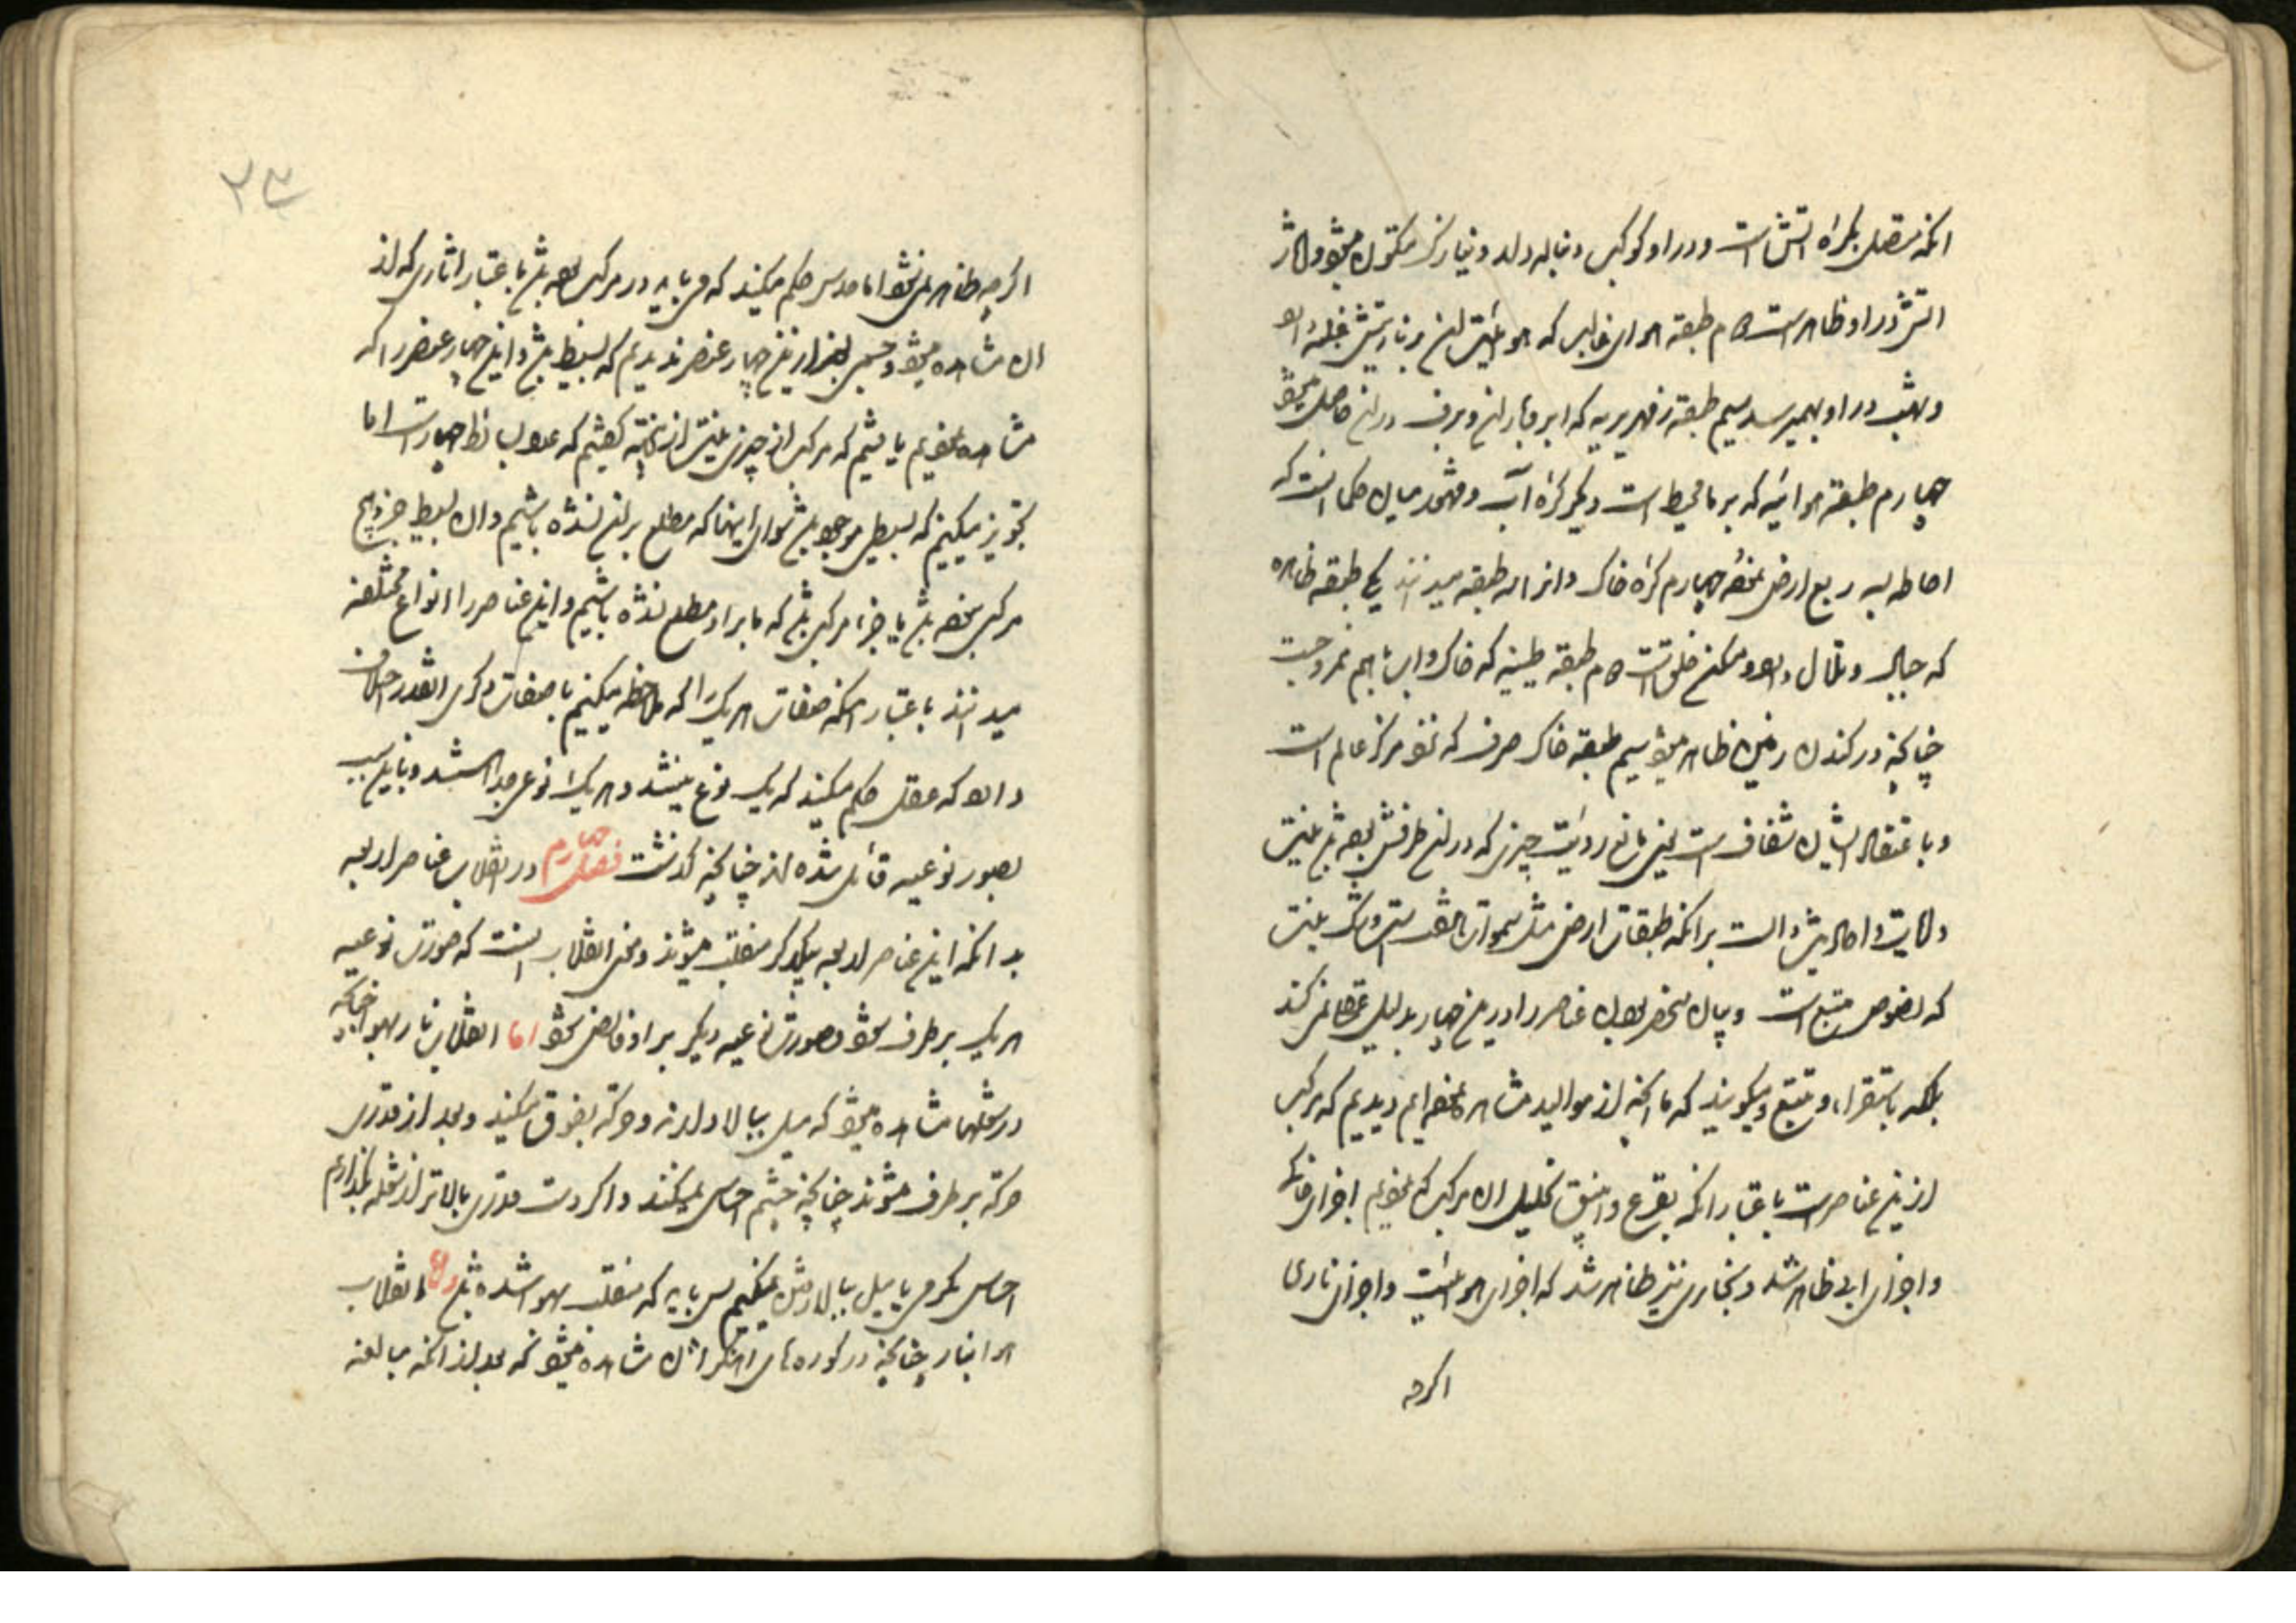 آنکه متصل بکراه آتش است و در او کوکب دنباله دار و نیازک متکون میشود و آثار
آتش در او ظاهر است دوم طبقه هوای غالب که هوائیتش بر ناریتش غلبه دارد
و شهب در او بهمیرسد سیم طبقه زمهریریه که ابر و باران و برف در آن حاصل میشود
چهارم طبقه هوائیه که بر ما محیط است دیگر کره آب و مشهور میان حکما آنست که
احاطه بسه ربع ارض نموده چهارم کره خاک و آنرا سه طبقه میدانند یکی طبقه ظاهره
که جبال و تلال دارد و مسکن خلق است دوم طبقه طینیه که خاک و آب باهم ممزوجست
چنانچه در کندن زمین ظاهر میشود سیم طبقه خاک صرف که نحو مرکز عالم است
و باعتقاد ایشان شفاف است یعنی مانع رؤیت چیزی که در آن طرفش بوده باشد نیست
و آیات و احادیث دالست بر آنکه طبقات ارض مثل سموات هفت است و شک نیست
که نصوص متبع است و بیان منحصر بودن عناصر را در این چهار بدلیل عقلا نمیکنند
بلکه باستقراء و تتبع و میکویند که ما آنچه از موالید مشاهده نموده ایم دیدیم که مرکب
از این عناصر است باعتبار آنکه بقرع و انبیق تحلیل آن مرکب که نمودیم اجزای خاکی
و اجزای آبی ظاهر شد و بخاری نیز ظاهر شد که اجزای هوائیست و اجزای ناری
اکرچه
۲۳
اکرچه ظاهر نمیشود اما حدس حکم میکند که می باید در مرکب بوده باشد باعتبار آثاری که از
آن مشاهده میشود و جسمی بغیر از این چهار عنصر ندیدیم که بسیط باشد و این چهار عنصر را که
مشاهده نمودیم یافتیم که مرکب از چیزی نیست از اینجهة گفتیم که عدد بسائط چهار است اما
تجویز میکنیم که بسیطی موجود باشد سوای اینها که مطلع بر آن نشده باشیم و آن بسیط جزو هیچ
مرکبی نبوده باشد یا جزء مرکبی باشد که ما بر او مطلع نشده باشیم و این عناصر را انواع مختلفه
میدانند باعتبار آنکه صفات هر یک را که ملاحظه میکنیم با صفات دیگری آنقدر اختلاف
دارد که عقل حکم میکند که یک نوع نیستند و هر یک نوعی جدا هستند و باین سبب
بصور نوعیه قائل شده اند چنانچه گذشت فصل چهارم در انقلاب عناصر اربعه
بدانکه این عناصر اربعه بیکدیگر منقلب میشوند و معنی انقلاب اینست که صورت نوعیه
هر یک برطرف شود و صورت نوعیه دیگر بر او فایض شود اما انقلاب نار بهوا چنانکه
در شعلها مشاهده میشود که میل ببالا دارند و حرکة بفوق میکنند و بعد از قدری
حرکة برطرف میشوند چنانچه چشم احساس نمیکند و اگر دست قدری بالاتر از شعله بگذاریم
احساس گرمی یا میل ببالا رفتن نمیکنیم پس باید که منقلب بهوا شده باشد و اما انقلاب
هوا بنار چنانچه در کوره های آهنگران مشاهده میشود که بعد از آنکه مبالغه